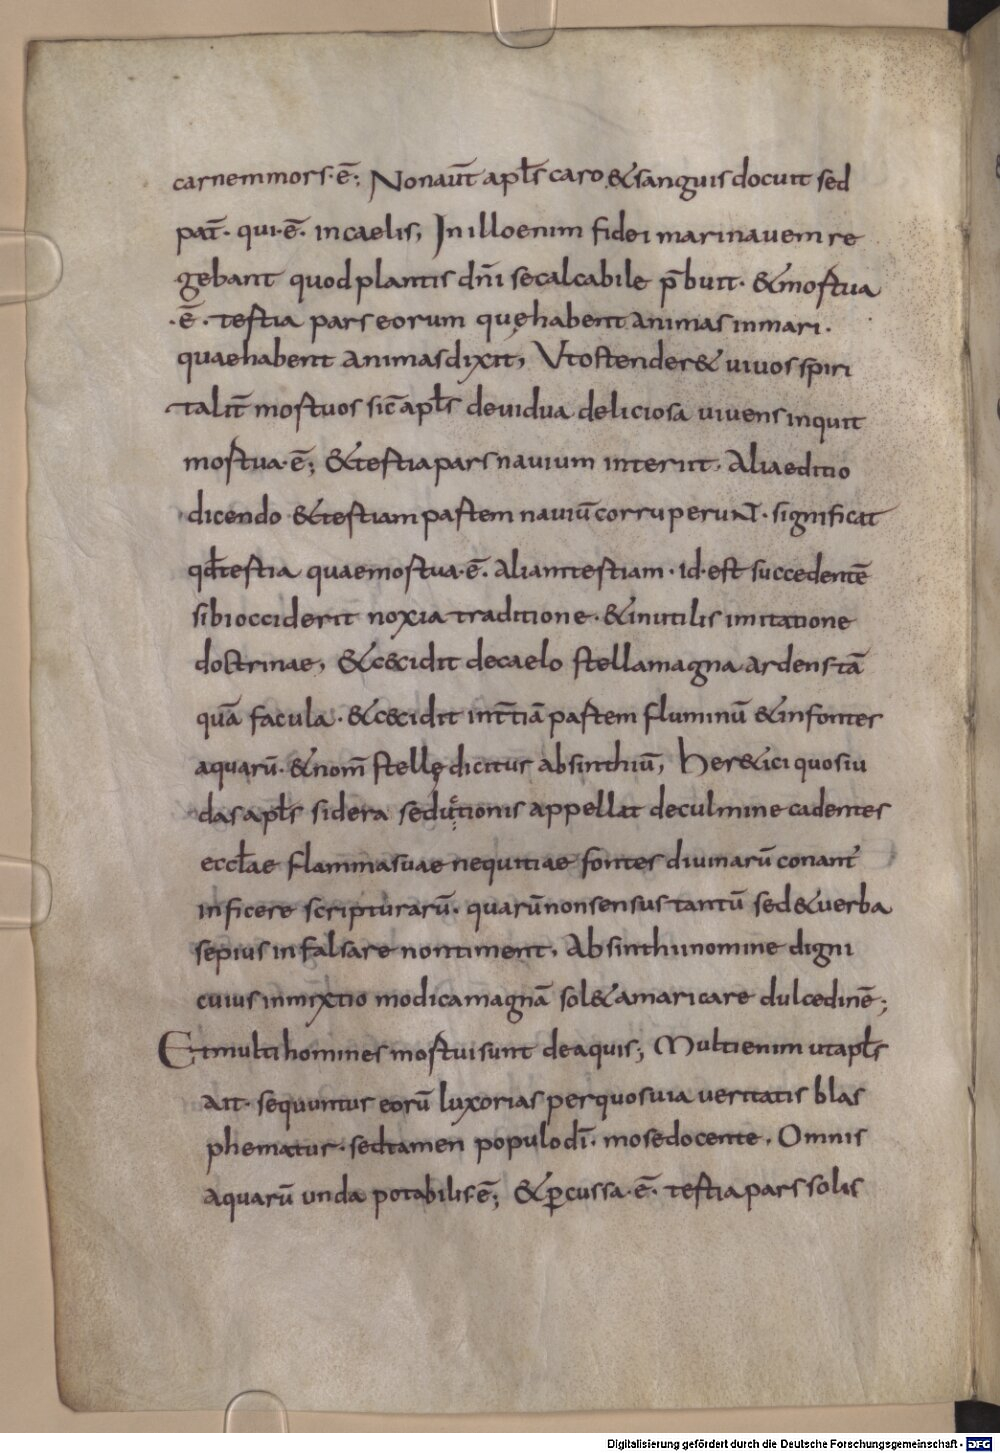 carnem mors·ē; Non aut̄ apl̄s caro & sanguis docuit sed
pat̄· qui·ē· in caelis; In illo enim fidei mari navem re
gebant quod plantis dn̄i se calcabile p̄buit· & mortua
·ē· tertia pars eorum quę habent animas in mari·
quae habent animas dixit; Vt ostender& vivos spiri
talit̄ mortuos sic̄ apl̄s de vidua deliciosa vivens inquit
mortua·ē; & tertia pars navium interiit. Alia editio
dicendo & tertiam partem naviū corruperunt· significat
qd̄ tertia quae mortua·ē· aliam tertiam· id·est succedentē
sibi occiderit noxia traditione· & inutilis imitatione
doctrinae; & c&cidit de caelo stella magna ardens tā
quā facula· & c&cidit in t̄tiā partem fluminū & in fontes
aquarū· & nom̄ stellę dicitur absinthiū; Her&ici quos iu
das apl̄s sidera seductionis appellat de culmine cadentes
eccl̄ae flamma suae nequitiae fontes divinarū conant᷑
inficere scripturarū· quarū non sensus tantū sed & verba
sepius infalsare non timent. Absinthii nomine digni
cuius inmixtio modica magnā sol& amaricare dulcedinē;
Et multi homines mortui sunt de aquis; Multi enim ut apl̄s
ait· sequuntur eorū luxorias per quos via veritatis blas
phematur· sed tamen populo dī· mose docente. Omnis
aquarū unda potabilis·ē; & p̱cussa·ē· tertia pars solis
Digitalisierung gefördert durch die Deutsche Forschungsgemeinschaft - DFG